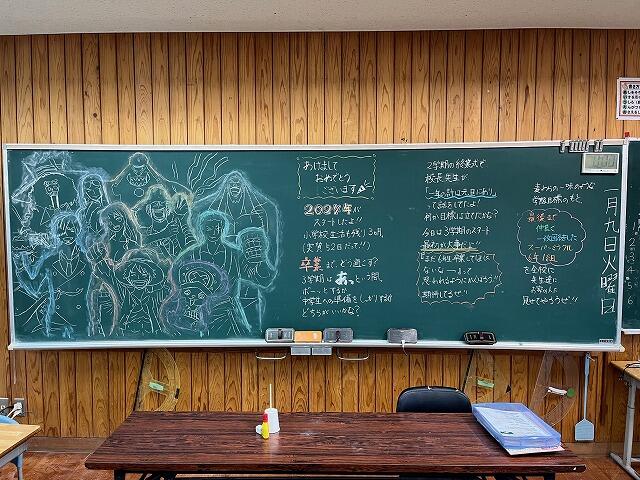 あけまして
おめでとう
ございます
2024年が
スタートしたよ!!
小学校生活も残り3ヵ月
(実質52日だって!!)
卒業まで、どう過ごす?
3学期はあっという間
ボーッとするか
中学生への準備をしっかりするか
どちらがいいかな?
2学期の終業式で
校長先生が
「一年の計は元旦にあり」
って話をしてたよ!
何か目標は立てたかな?
今日は3学期のスタート
最初が大事だよ!!
まだ6年生卒業してほしく
ないな―って
思われるようにがんばろう!!
期待してるぜ!!
麦わらの一味のような
学級目標のもと
最後まで
仲良く
一致団結した
スーパーミラクル
6年1組
を全校に
先生達に
お家の人に
見せてやろうぜ!!
一月九日火曜日